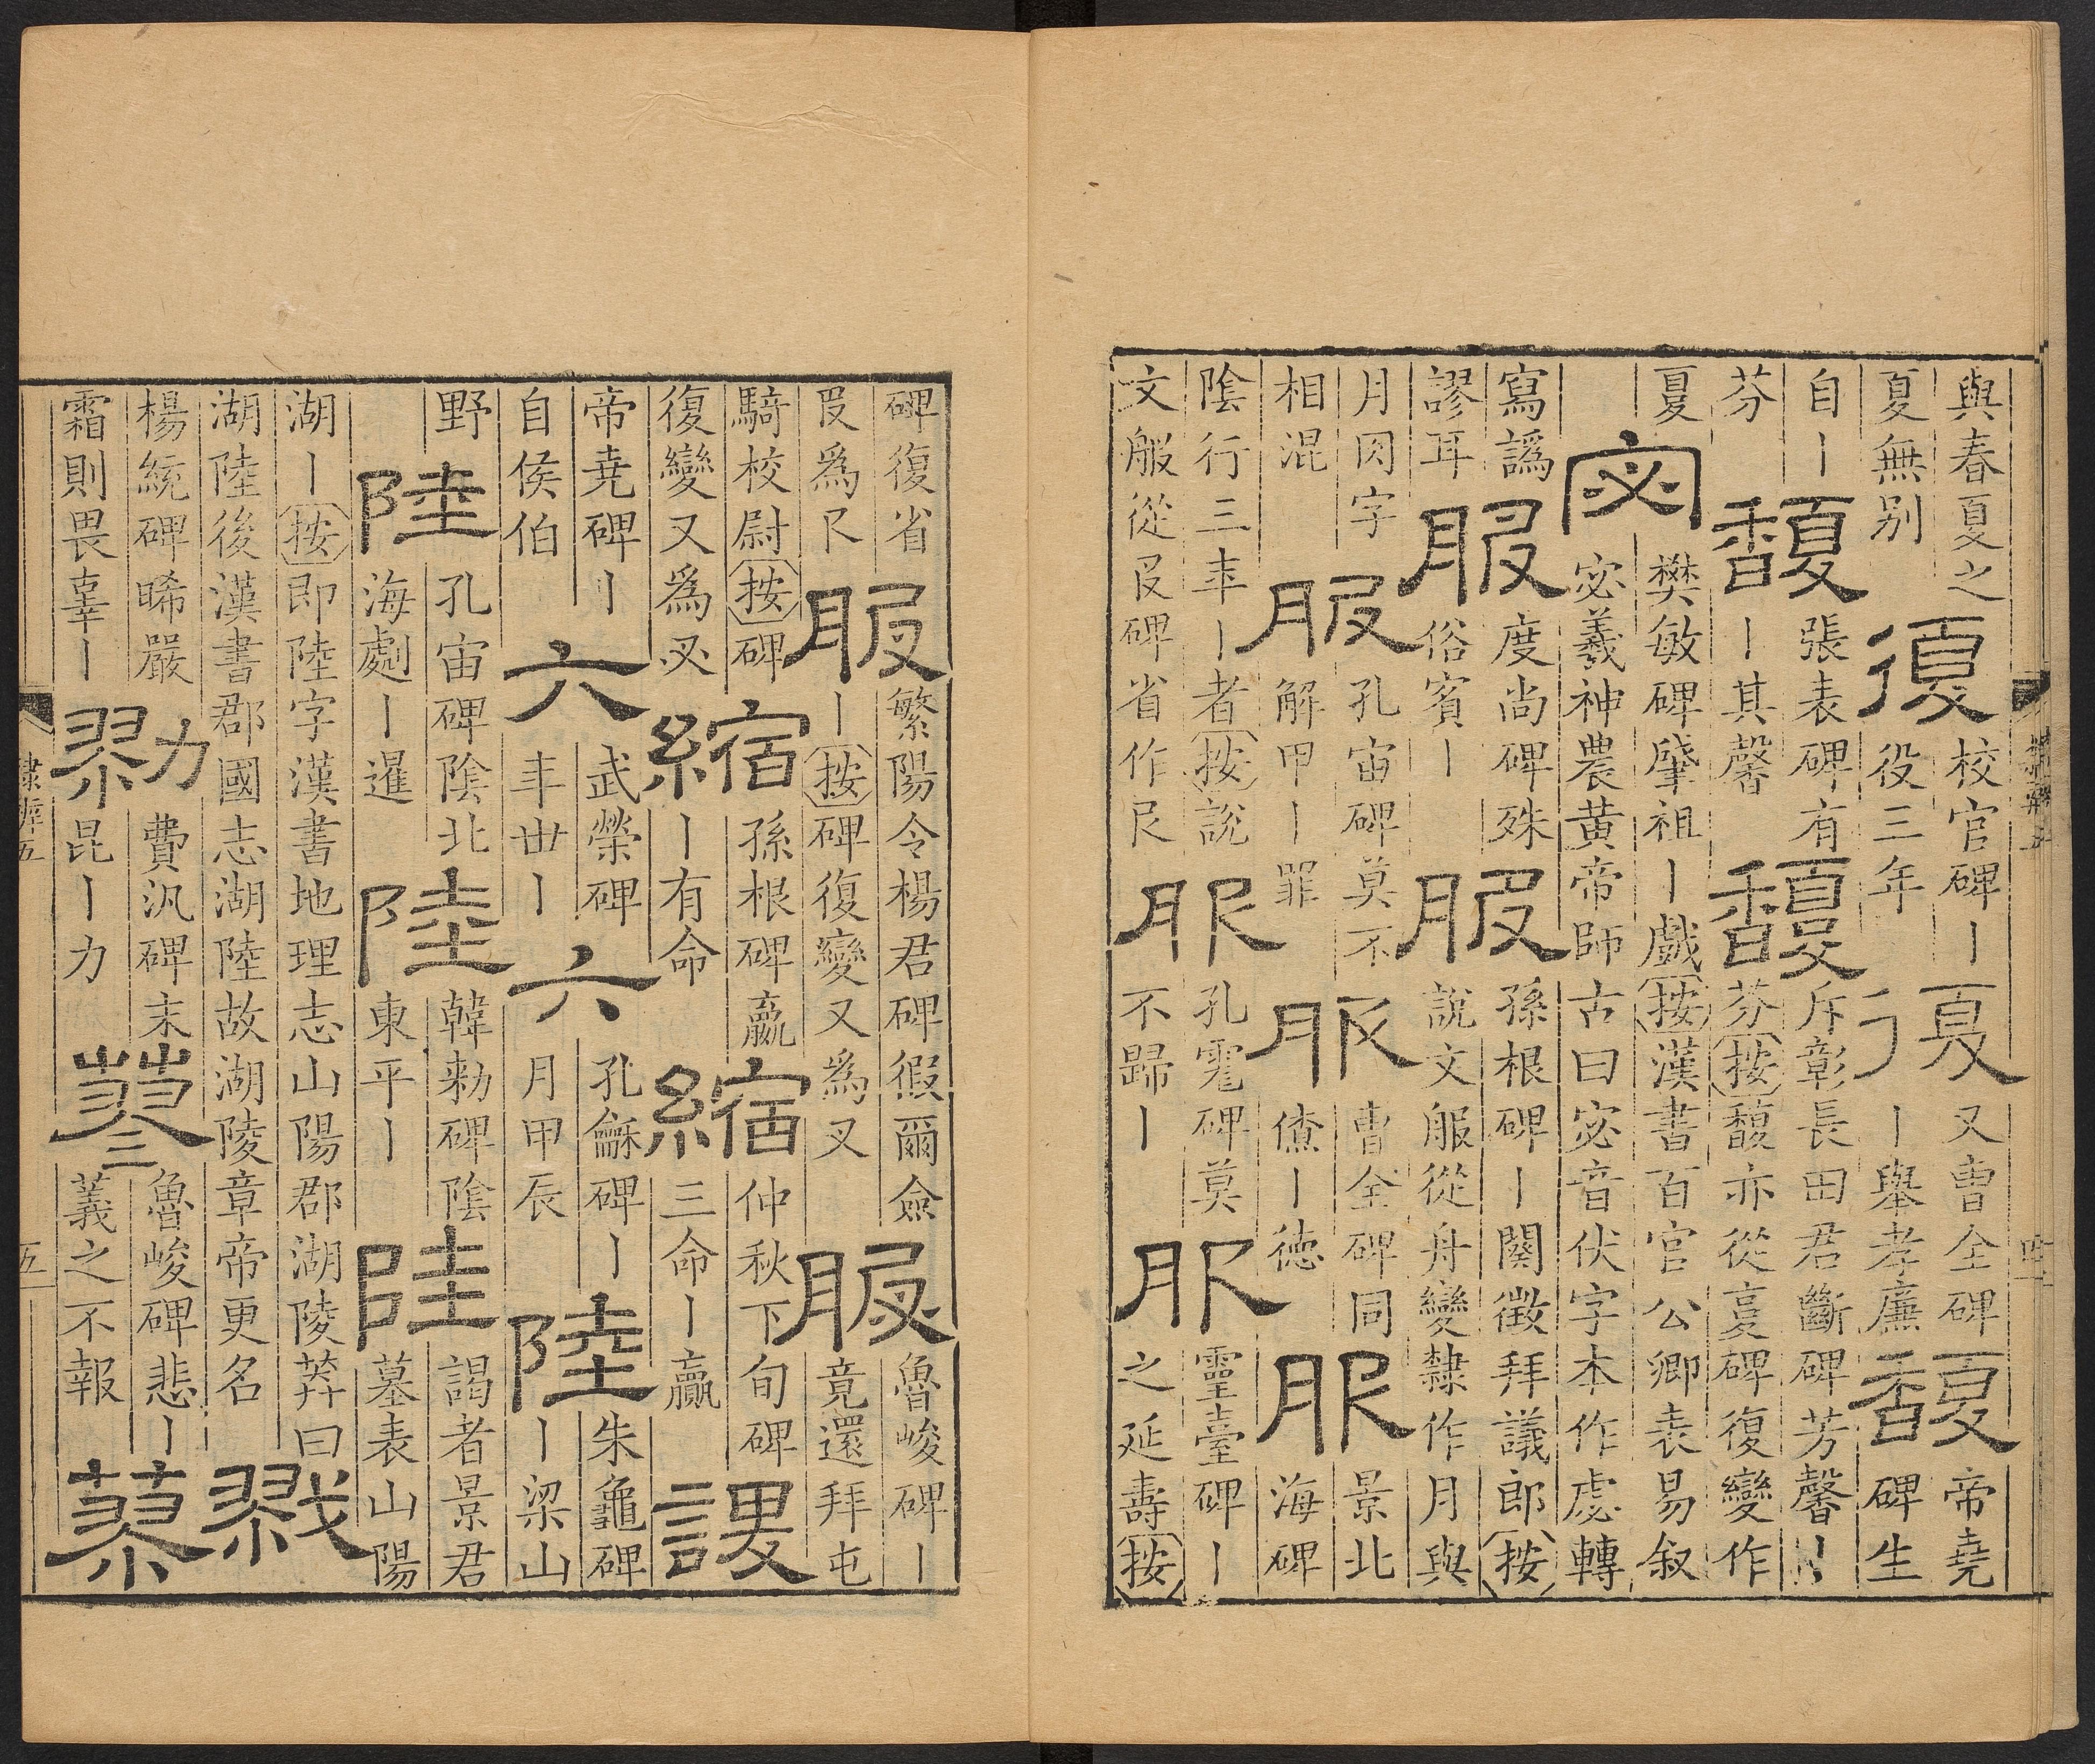 與春夏之夏無别復校官碑丨役三年復又曹全碑丨舉孝廉馥帝堯碑生
自丨芬馥張表碑有丨其馨馥斥彰長田君斷碑芳馨丨芬按馥亦從复碑復變作
夏宓樊敏碑肇祖丨戲按漢書百官公卿表易叙宓羲神農黄帝師古曰宓音伏字本作虙轉
寫譌謬耳服度尚碑殊俗賓丨服孫根碑丨闕徵拜議郎按說文服從舟變隸作月與
月肉字相混服孔宙碑莫不解甲丨罪服曹全碑同僚丨德服景北海碑
陰行三年丨者按說文服從𠬝碑省作𠬝服孔彪碑莫不歸丨服靈臺碑丨之延壽按
碑復省𠬝爲卪服繁陽令楊君碑假爾僉丨按碑復變又爲㕛服魯峻碑丨竟還拜屯
騎校尉按碑復變又爲㕛縮孫根碑贏丨有命縮仲秋下旬碑三命丨贏謖
帝堯碑丨自侯伯六武榮碑年丗丨六孔龢碑丨月甲辰陸朱龜碑丨梁山
野陸孔宙碑陰北海劇丨暹陸韓勑碑陰東平丨陸謁者景君墓表山陽
湖丨按即陸字漢書地理志山陽郡湖陵莽曰湖陸後漢書郡國志湖陸故湖陵章帝更名戮
楊統碑晞嚴霜則畏辜丨勠費汎碑末昆丨力蓼魯峻碑悲丨義之不報蓼
隸辨五
五